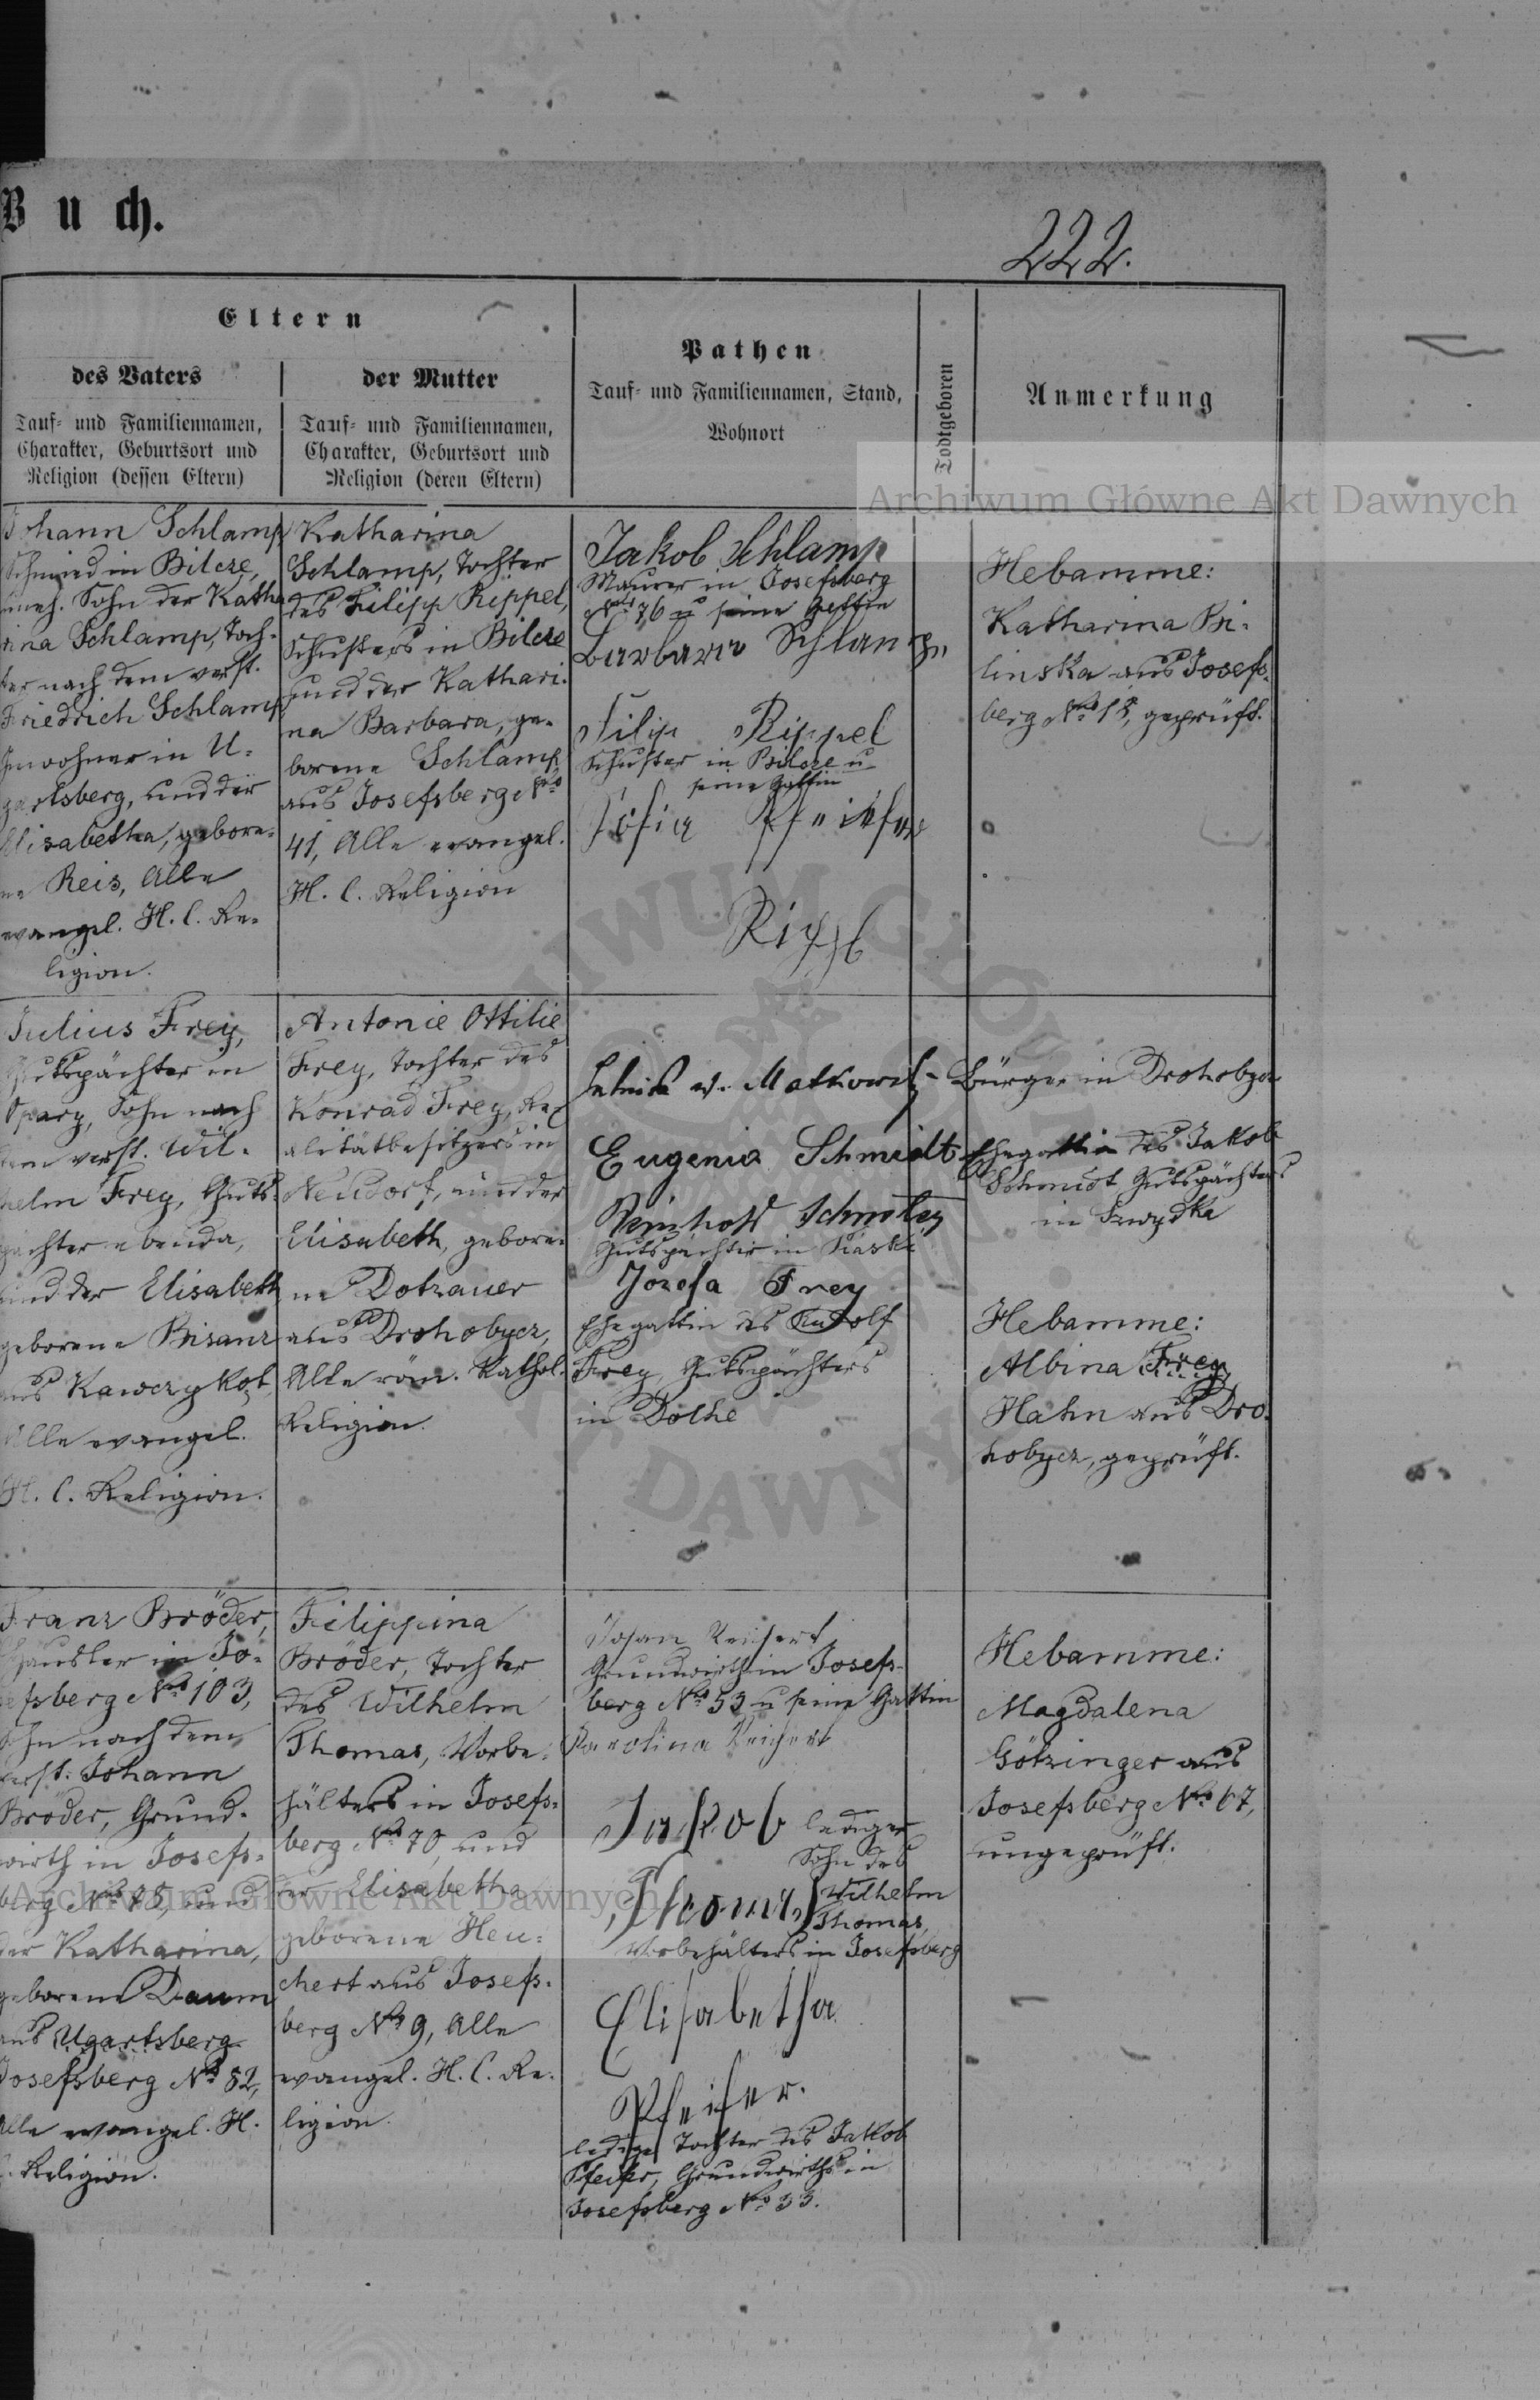 Buch.
222.
Eltern
des Vaters
Tauf- und Familiennamen,
Charakter, Geburtsort und
Religion (dessen Eltern)
der Mutter
Tauf- und Familiennamen,
Charakter, Geburtsort und
Religion (deren Eltern)
Pathen
Tauf- und Familiennamen, Stand,
Wohnort
Todtgeboren
Anmerkung
Archiwum Główne Akt Dawnych
Johann Schlamp
Schmied in Bilcze,
uneh. Sohn der Katha
rina Schlamp, Toch-
ter nach dem verst.
Friedrich Schlamp
Inwohner in U-
gartsberg, und der
Elisabetha, gebore-
ne Reis, Alle
evangel. H. C. Re-
ligion.
Katharina
Schlamp, Tochter
des Filipp Rippel,
Schusters in Bilcze
und der Kathari-
na Barbara, ge-
borene Schlamp,
aus Josefsberg No
41, Alle evangel.
H. C. Religion
Jakob Schlamp
Maurer in Josefsberg
No 76 u seine Gattin
Barbara Schlamp
Filip Rippel
Schuster in Bilcze u
seine Gattin
Sofia Pfeifer
Rippl
Hebamme:
Katharina Bi-
linska aus Josefs-
berg No 12, geprüft.
Julius Frey,
Gutspächter in
Opary, Sohn nach
dem verst. Wil-
helm Frey, Guts-
pächter ebenda,
und der Elisabeth
geborene Bisanz
aus Kawczykąt
Alle evangel.
H. C. Religion.
Antonie Ottilie
Frey, Tochter des
Konrad Frey, Re-
alitätbesitzers in
Neudorf, und der
Elisabeth, gebore-
ne Dotzauer
aus Drohobycz,
Alle röm. Kathol.
Religion.
v. Matkowsky - Bürger in Drohobycz
Eugenia Schmidt Ehegattin des Jakob
Schmidt Gutspächters
in
Reinhold
Gutspächter in
Jozefa Frey
Ehegattin des Rudolf
Frey, Gutspächters
in Dolhe
Hebamme:
Albina Frey
Hahn aus Dro-
hobycz, geprüft.
Franz Bröder,
Häusler in Jo-
sefsberg No 103,
Sohn nach dem
verst. Johann
Bröder, Grund-
wirth in Josefs-
berg No 85, und
der Katharina,
geborene Daum
aus Ugartsberg
Josefsberg No 82,
Alle evangel. H.
C. Religion.
Filippina
Bröder, Tochter
des Wilhelm
Thomas, Vorbe-
hälters in Josefs-
berg No 70, und
der Elisabetha
geborene Heu-
chert aus Josefs-
berg No 9, Alle
evangel. H. C. Re-
ligion.
Johan Reichert
Grundwirth in Josefs-
berg No 53 u seine Gattin
Karolina Reichert
Jakob lediger
Sohn des
Thomas Wilhelm
Thomas,
Vorbehälters in Josefsberg
Elisabetha
Pfeifer.
ledige Tochter des Jakob
Pfeifer, Grundwirths in
Josefsberg No 33.
Hebamme:
Magdalena
Götzinger aus
Josefsberg No 67,
ungeprüft.
Archiwum Główne Akt Dawnych